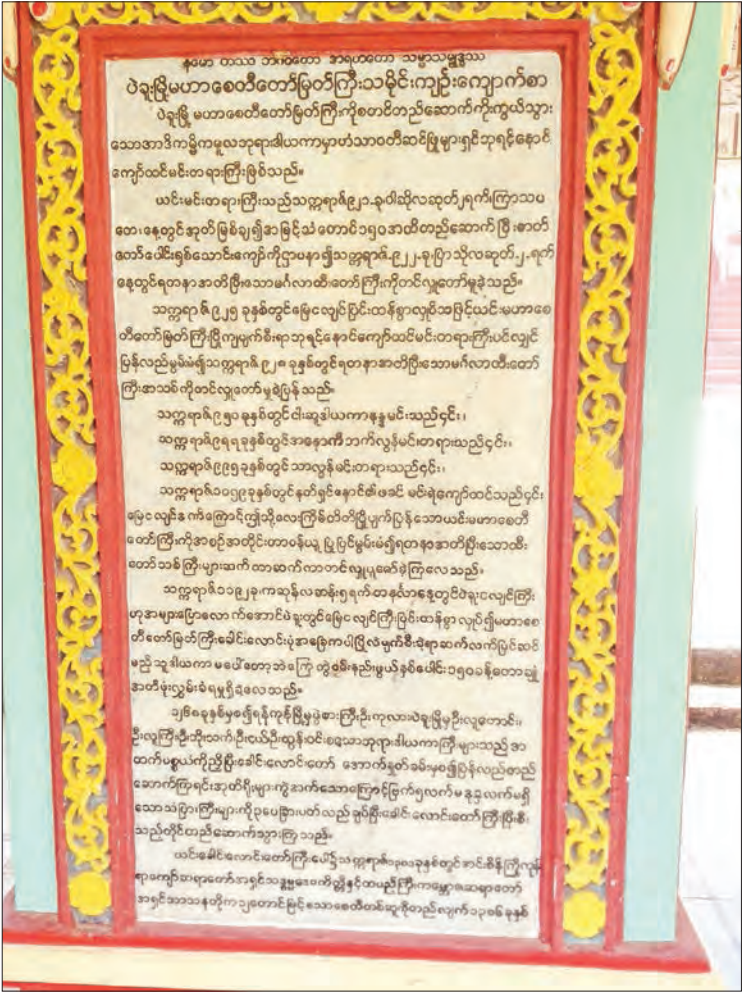 နမော တဿ ဘဂဝတော အရဟတော သမ္မာသမ္ဗုဒ္ဓဿ
ပဲခူးမြို့မဟာစေတီတော်မြတ်ကြီးသမိုင်းကျဉ်းကျောက်စာ
ပဲခူးမြို့မဟာစေတီတော်မြတ်ကြီးကိုစတင်တည်ဆောက်ကိုးကွယ်သွား
သောအာဒိကမ္မိကမူလဘုရားဒါယကာမှာဟံသာဝတီဆင်ဖြူများရှင်ဘုရင့်နောင်
ကျော်ထင်မင်းတရားကြီးဖြစ်သည်။
ယင်းမင်းတရားကြီးသည်သက္ကရာဇ်၉၂၁-ခုဝါဆိုလဆုတ်၂ရက်၊ကြာသပ
တေးနေ့တွင်အုတ်မြစ်ချ၍အမြင့်သံတောင်၁၅၀အထိတည်ဆောက်ပြီးဓာတ်
တော်ပေါင်းရှစ်သောင်းကျော်ကိုဌာပနာ၍သက္ကရာဇ်-၉၂၂-ခု၊ပြာသိုလဆုတ်-၂-ရက်
နေ့တွင်ရတနာအတိပြီးသောမင်္ဂလာထီးတော်ကြီးကိုတင်လှူတော်မူခဲ့သည်။
သက္ကရာဇ်၉၂၅ခုနှစ်တွင်မြေငလျင်ပြင်းထန်စွာလှုပ်သဖြင့်ယင်းမဟာစေ
တီတော်မြတ်ကြီးပြိုကျပျက်စီးရာဘုရင့်နောင်ကျော်ထင်မင်းတရားကြီးပင်လျှင်
ပြန်လည်မွမ်းမံ၍သက္ကရာဇ်၉၂၈ခုနှစ်တွင်ရတနာအတိပြီးသောမင်္ဂလာထီးတော်
ကြီးအသစ်ကိုတင်လှူတော်မူခဲ့ပြန်သည်။
သက္ကရာဇ်၉၅၁ခုနှစ်တွင်ငါးဆူဒါယကာနန္ဒမင်းသည်၎င်း၊
သက္ကရာဇ်၉၇၇ခုနှစ်တွင်အနောက်ဘက်လွန်မင်းတရားသည်၎င်း၊
သက္ကရာဇ်၉၉၅ခုနှစ်တွင်သာလွန်မင်းတရားသည်၎င်း၊
သက္ကရာဇ်၁၀၅၉ခုနှစ်တွင်နတ်ရှင်နောင်၏ဖခင် မင်းရဲကျော်ထင်သည်၎င်း
မြေငလျင်ဒဏ်ကြောင့်ဤသို့လေးကြိမ်တိတိပြိုပျက်ပြန်သောယင်းမဟာစေတီ
တော်ကြီးကိုအစဉ်အတိုင်းတာဝန်ယူပြုပြင်မွမ်းမံ၍ရတနာအတိပြီးသောထီး
တော်သစ်ကြီးများဆက်ကာဆက်ကာတင်လှူပူဇော်ခဲ့ကြလေသည်။
သက္ကရာဇ်၁၁၉၂ခု၊ကဆုန်လဆန်း၅ရက်တနင်္လာနေ့တွင်ပဲခူးငလျင်ကြီး
ဟုအများပြောလောက်အောင်ပဲခူးတွင်မြေငလျင်ကြီးပြင်းထန်စွာလှုပ်၍မဟာစေ
တီတော်မြတ်ကြီးခေါင်းလောင်းပုံအခြေကပါပြိုလဲပျက်စီးခဲ့ရာဆက်လက်ပြင်ဆင်
မည့်သူဒါယကာမပေါ်တော့ဘဲကြေကွဲဖွယ်နှစ်ပေါင်း၁၅၀ခန့်တောချုံ
အတိဖုံးလွှမ်းခံရမှုရှိခဲ့လေသည်။
၁၂၆၈ခုနှစ်မှစ၍ရန်ကုန်မြို့မှပွဲစားကြီးဦးကုလားပဲခူးမြို့မှဦးလူတောင်း၊
ဦးလူကြီး၊ဦးဘိုးသက်၊ဦးငယ်၊ဦးထွန်ဝင်းစသောဘုရားဒါယကာကြီးများသည်အ
ထက်ပစ္စယံကိုညှိပြီးခေါင်းလောင်းတော် အောက်နှုတ်ခမ်းမှစ၍ပြန်လည်တည်
ဆောက်ကြရင်းအုတ်ရိုးများကွဲအက်သောကြောင့်ဗြက်၅လက်မဒုဠလက်မရှိ
သောသံပြားကြီးများကို၃ပေခြားပတ်လည်ချုပ်ပြီးခေါင်းလောင်းတော်ကြီးပြီးစီး
သည်တိုင်တည်ဆောက်သွားကြသည်။
ယင်းခေါင်းလောင်းတော်ကြီးပေါ်၌သက္ကရာဇ်၁၃၀၁ခုနှစ်တွင်အင်းစိန်ကြို့ကုန်း
ရာကျော်ဆရာတော်အရှင်သဒ္ဓမ္မဒေဝကိတ္တိနှင့်တပည့်ကြီးကမ္ဘောဇဆရာတော်
အရှင်သာသနတို့က၁၂တောင်မြင့်သောစေတီတစ်ဆူစိုတည်လျက်၁၃၁၆ခုနှစ်